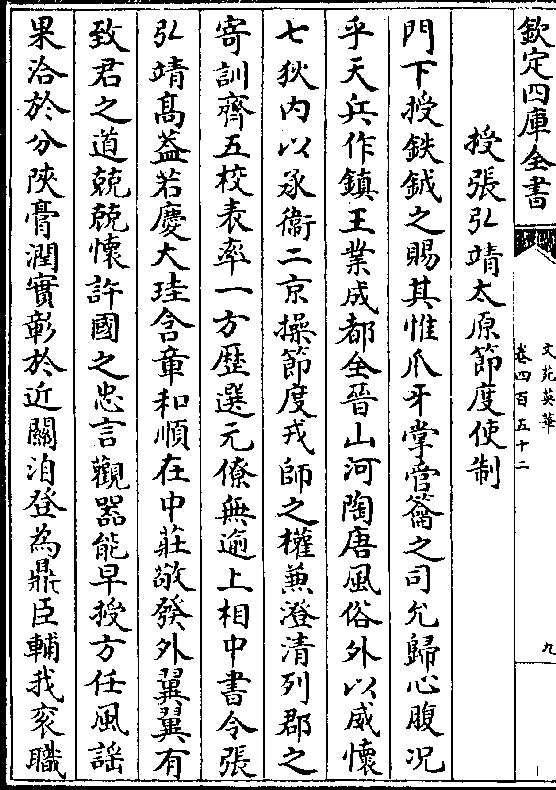 欽定四庫全書
文苑英華
卷四百五十二
九
授張弘靖太原節度使制
門下授鉄鉞之賜其惟爪牙掌管籥之司允歸心腹况
乎天兵作鎮王業成都全晉山河陶唐風俗外以威懷
七狄内以承衞二京操節度戎師之權兼澄清列郡之
寄訓齊五校表率一方歴選元僚無逾上相中書令張
弘靖髙葢若慶大珪含章和順在中莊敬發外翼翼有
致君之道兢兢懷許國之忠言觀器能早授方任風謡
果洽於分陜膏潤實彰於近關洎登為鼎臣輔我衮職